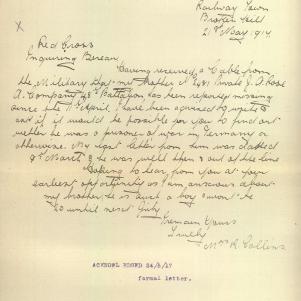 Railway Town
Broken Hill
21st May 1917
X
Red Cross
Inquiring Bureau
Having received a Cable from
the Military Dpt. Brother 2481 J. A. Rose
A. Company 48 Battalion has been reported missing
since the 11th April. I have been advised to write
and if it would be possible for you to find out
wether he was a prisoner of war in Germany or
otherwise. My last letter from him was dated
8th March & he was well then & out of the line
Hoping to hear from you at your
earliest opportunity as I am anxious about
my brother he is such a boy wont be
20 until next July
I remain Yours
Truely
Mrs R. Collins
ACKNOWL EDGED 24/8/17
formal letter.